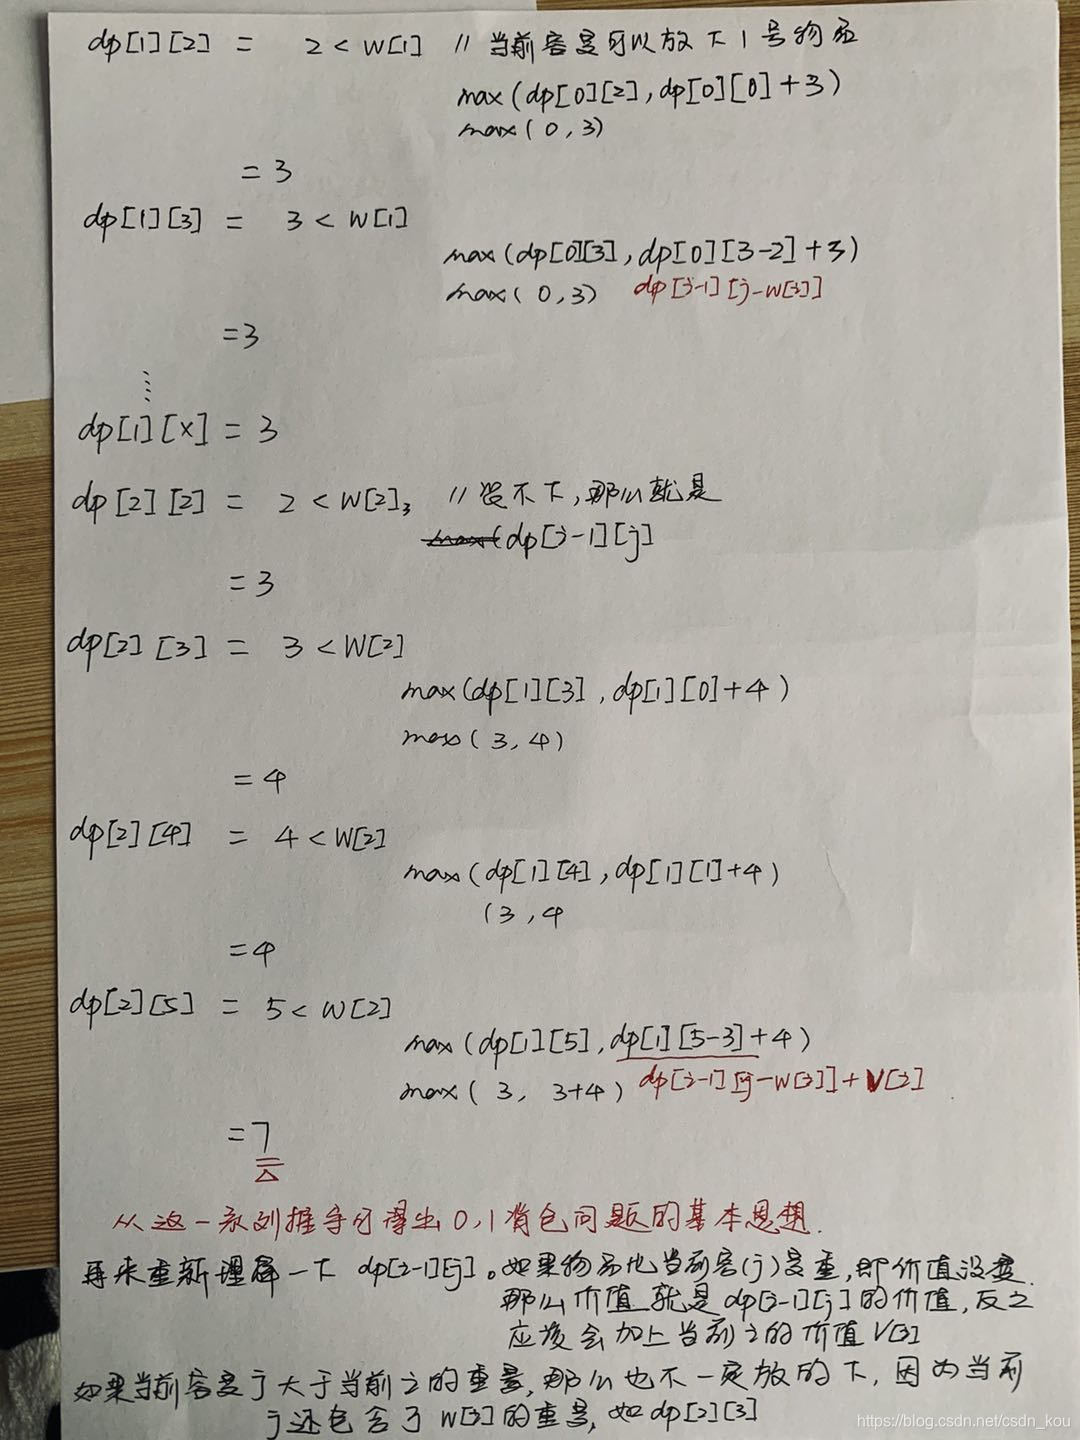 dp[1][2] = 2 < W[1] // 当前容量可以放下1号物品
max(dp[0][2], dp[0][0]+3)
max(0,3)
= 3
dp[1][3] = 3 < W[1]
max(dp[0][3], dp[0][3-2]+3)
max(0,3) dp[i-1][j-w[i]]
=3
dp[1][x] = 3
dp[2][2] = 2 < W[2]3 // 装不下,那么就是
max(dp[i-1][j]
= 3
dp[2][3] = 3 < W[2]
max(dp[1][3], dp[1][0]+4)
max(3,4)
= 4
dp[2][4] = 4 < W[2]
max(dp[1][4], dp[1][1]+4)
(3,4
=4
dp[2][5] = 5 < W[2]
max(dp[1][5], dp[1][5-3]+4)
max(3, 3+4) dp[i-1][j-w[i]]+V[i]
=7
从这一系列推导可得出0,1背包问题的基本思想.
再来重新理解一下 dp[i-1][j]。如果物品比当前容(j)量重,即价值没变.
那么价值就是dp[i-1][j]的价值,反之
应该会加上当前i的价值V[i]
如果当前容量j大于当前i的重量,那么也不一定放的下,因为当前
j还包含了W[i]的重量,如dp[2][3]
https://blog.csdn.net/csdn_kou